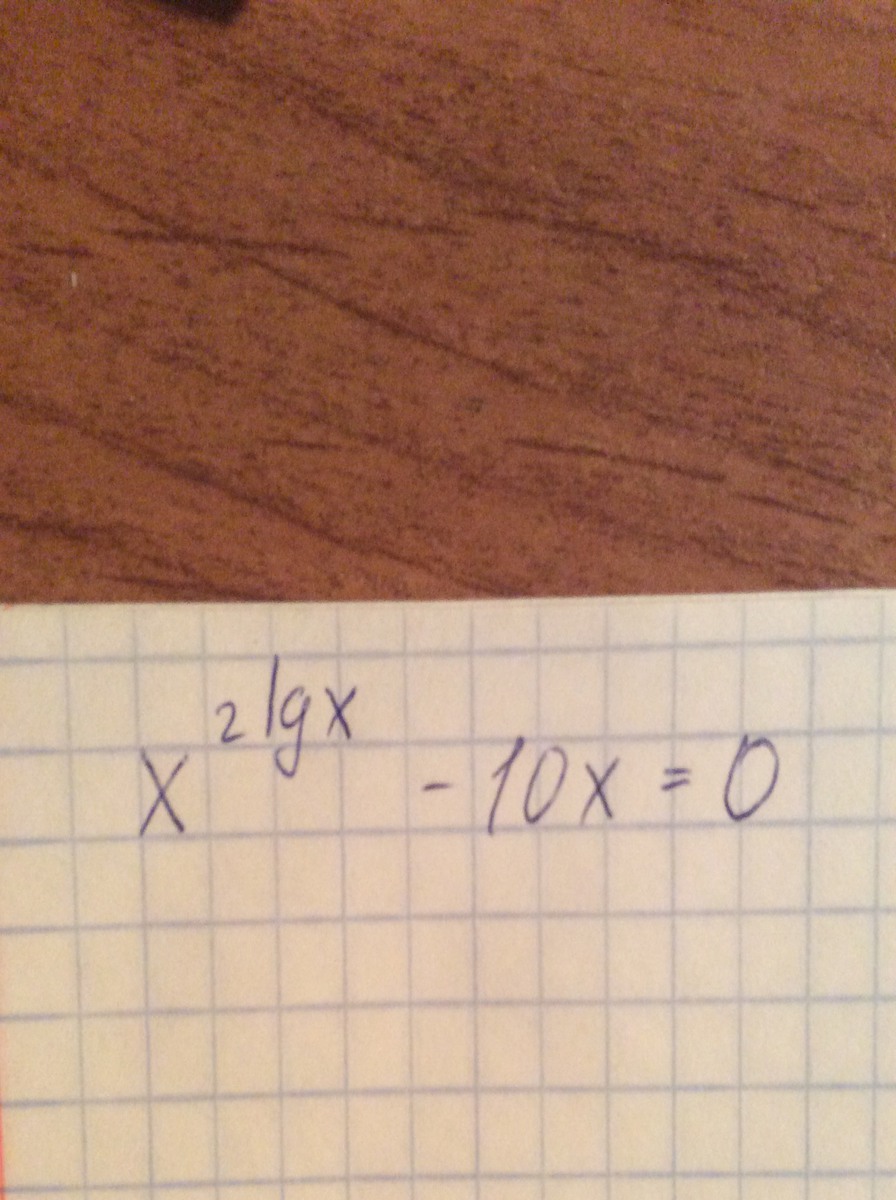 x^{2 lg x} - 10x = 0